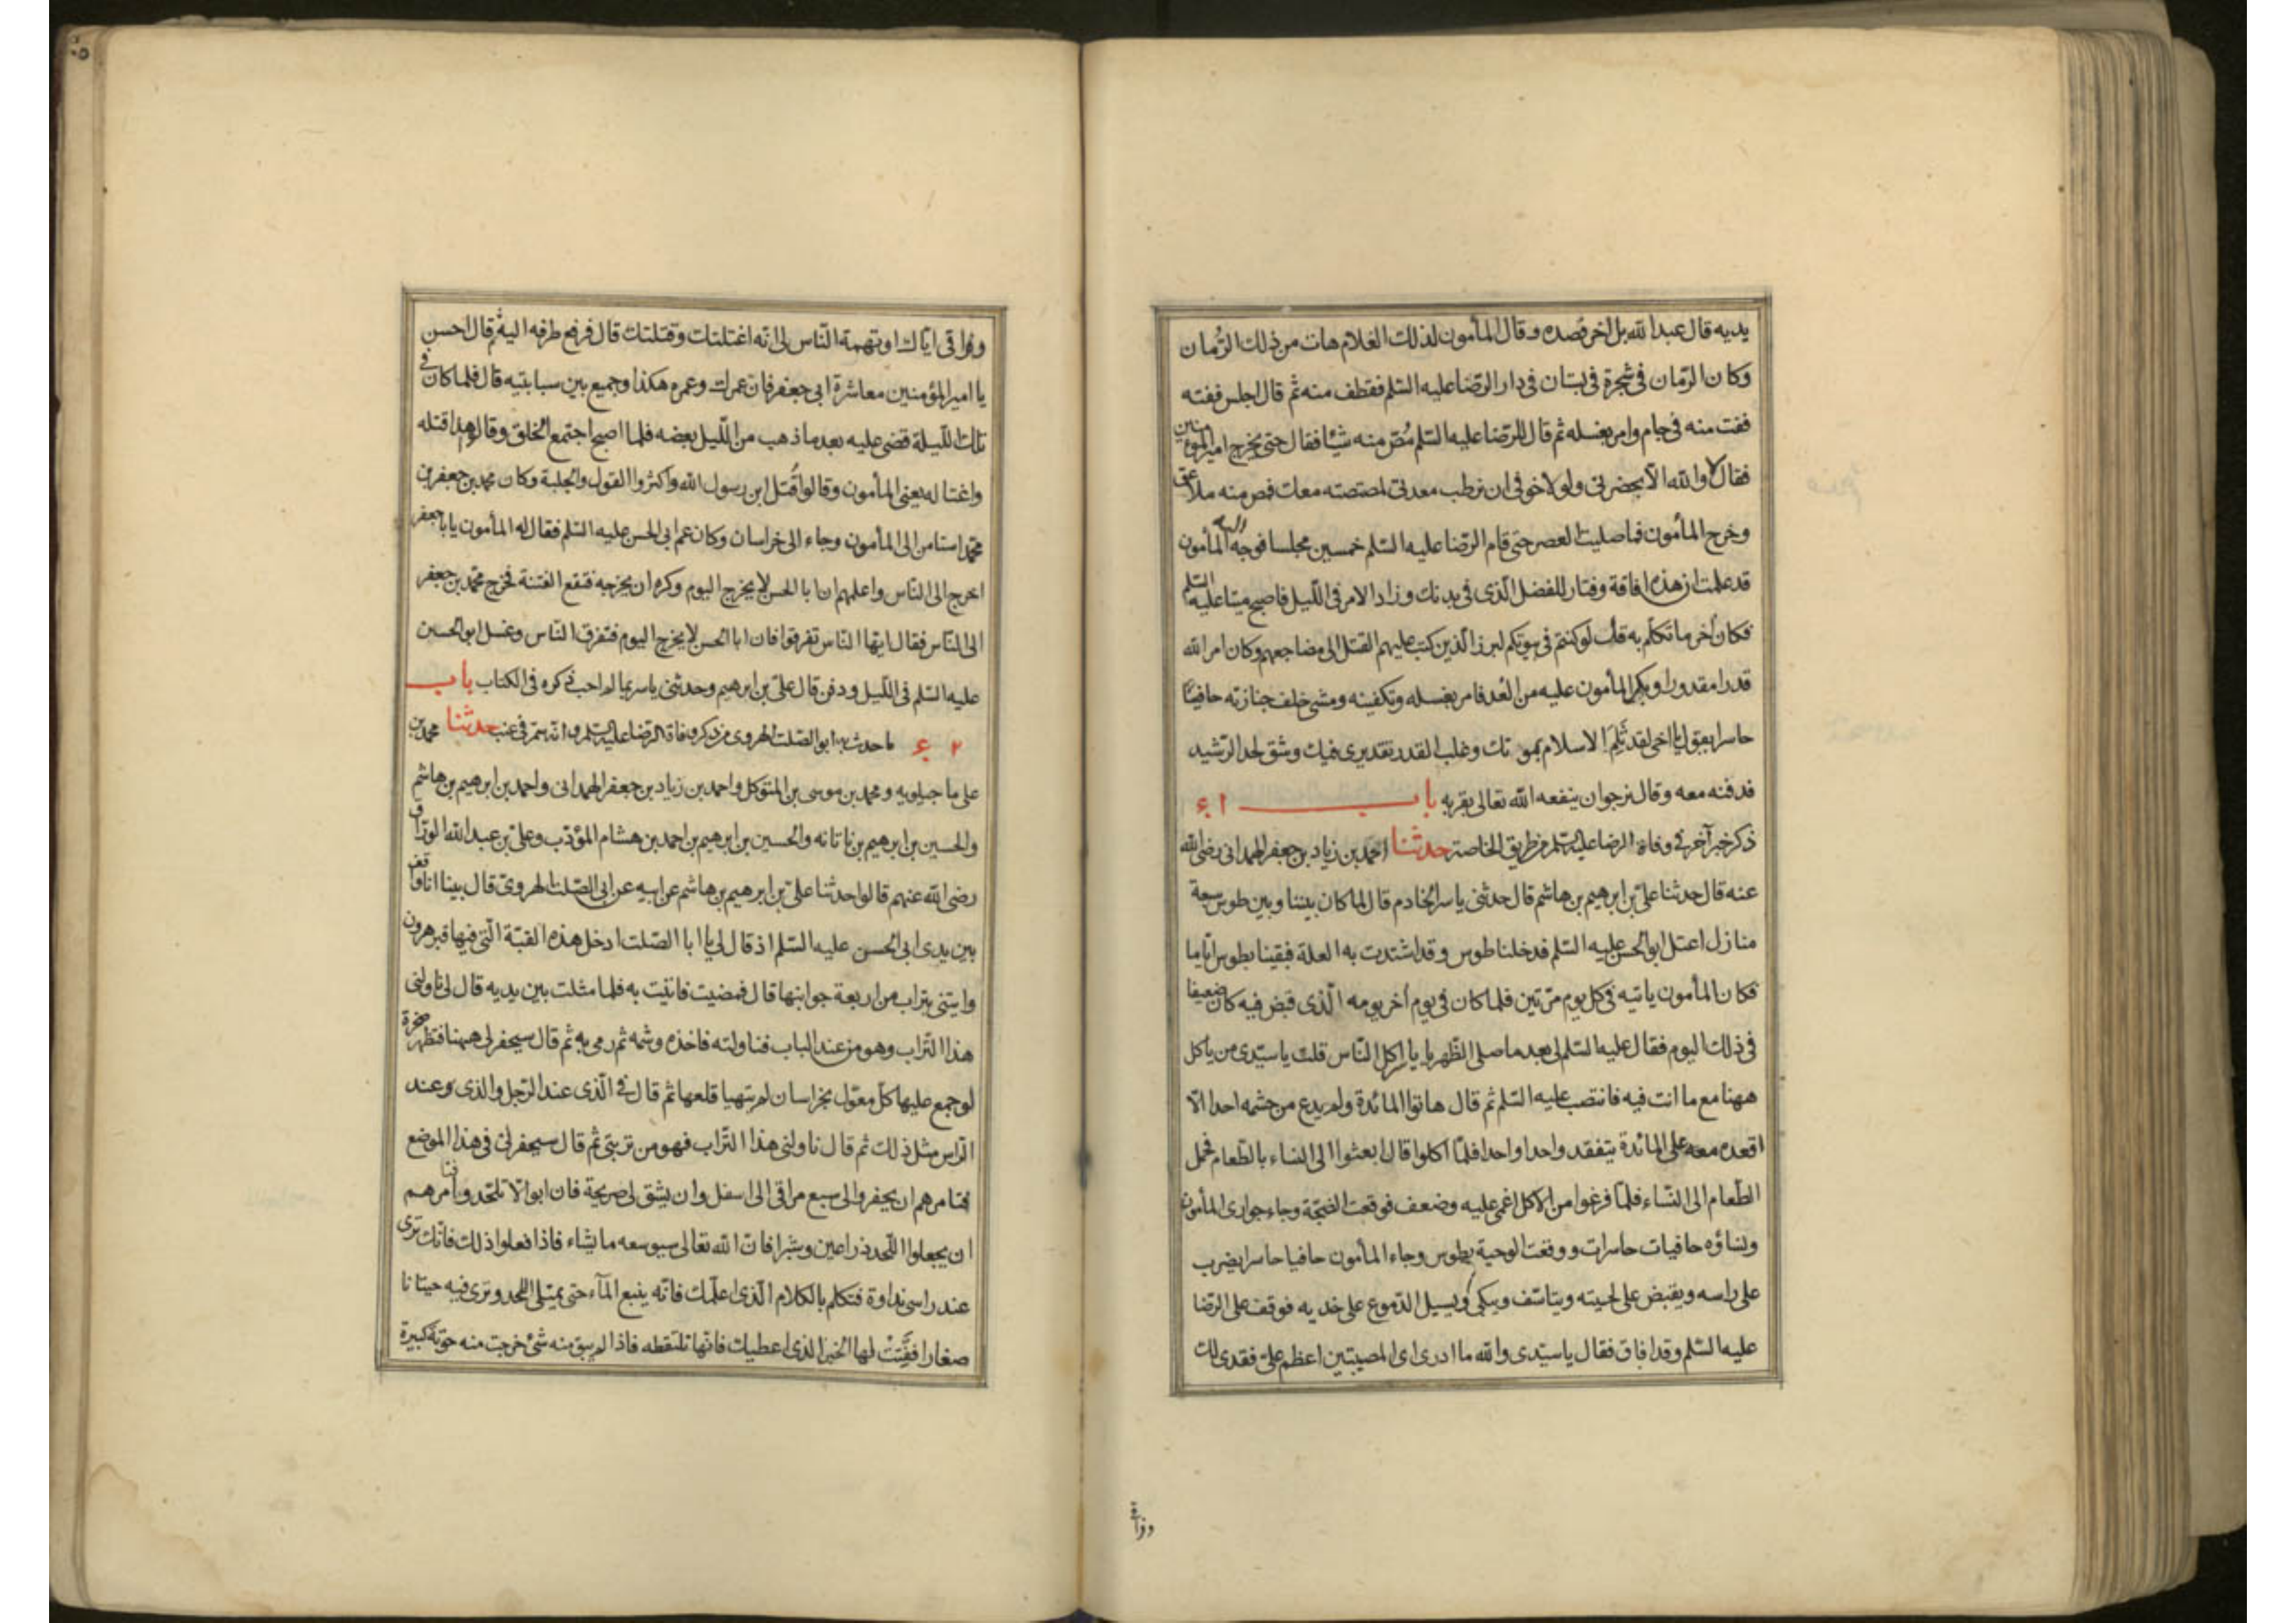 يديه قال عبد الله بل اخر فصده وقال المأمون لذلك الغلام هات من ذلك الرمان
وكان الرمان فى شجرة فى بستان فى دار الرضا عليه السلم فقطف منه ثم قال اجلس ففته
ففت منه فى جام وامر بغسله ثم قال للرضا عليه السلم مُصّ منه شيئا فقال حتى يخرج امير المؤمنين
فقال لا والله الّا بحضرتى ولولا خوفى ان يرطب معدتى لمصصته معك فمص منه ملاعق
وخرج المأمون فما صليت العصر حتى قام الرضا عليه السلم خمسين مجلسا فوجه اليه المأمون
قد علمت ان هذه افاقة وفتار للفضل الذى فى بدنك وزاد الامر فى الليل فاصبح ميتا عليه السلم
فكان آخر ما تكلم به قل لو كنتم فى بيوتكم لبرز الذين كتب عليهم القتل الى مضاجعهم وكان امر الله
قدرا مقدورا وبكر المأمون عليه من الغد فامر بغسله وتكفينه ومشى خلف جنازته حافيًا
حاسرا يقول يا اخى لقد ثُلِمَ الاسلام بموتك وغلب القدر تقديرى فيك وشق لحد الرشيد
فدفنه معه وقال نرجو ان ينفعه الله تعالى بقربه باب ٤١
ذكر خبر آخر فى وفاة الرضا عليه السلم من طريق الخاصة حدثنا احمد بن زياد بن جعفر الهمدانى رضى الله
عنه قال حدثنا على بن ابرهيم بن هاشم قال حدثنى ياسر الخادم قال لما كان بيننا وبين طوس سبعة
منازل اعتل ابو الحسن عليه السلم فدخلنا طوس وقد اشتدت به العلة فبقينا بطوس ايّاما
فكان المأمون ياتيه فى كل يوم مرّتين فلما كان فى يوم آخر يومه الّذى قبض فيه كان ضعيفا
فى ذلك اليوم فقال عليه السلم لى بعد ما صلى الظهر يا ياسر اكل الناس قلت يا سيّدى من ياكل
ههنا مع ما انت فيه فانتصب عليه السلم ثم قال هاتوا المائدة ولم يدع من حشمه احدا الّا
اقعده معه على المائدة يتفقد واحدا واحدا فلمّا اكلوا قال ابعثوا الى النساء بالطعام فحمل
الطّعام الى النّساء فلمّا فرغوا من الاكل اغمى عليه وضعف فوقعت الضجّة وجاء جوارى المأمون
ونساؤه حافيات حاسرات ووقعت الوحية بطوس وجاء المأمون حافيا حاسرا يضرب
على راسه ويقبض على لحيته ويتاسّف ويبكى ويسيل الدّموع على خديه فوقف على الرّضا
عليه السلم وقد افاق فقال يا سيّدى والله ما ادرى اى المصيبتين اعظم علىّ فقدى لك
وفراقى
وفراقى ايّاك او تهمة النّاس لى انّه اغتلتك وقتلتك قال فرفع طرفه اليه ثم قال احسن
يا امير المؤمنين معاشرة ابى جعفر فان عمرك وعمره هكذا وجميع بين سبابتيه قال فلما كان فى
تلك الليلة قضى عليه بعد ما ذهب من الليل بعضه فلما اصبح اجتمع الخلق وقالوا هذا قتله
واغتاله يعنى المأمون وقالوا قُتل ابن رسول الله واكثروا القول والجلبة وكان محمد بن جعفر بن
محمّد استامن الى المأمون وجاء الى خراسان وكان عم ابى الحسن عليه السلم فقال له المأمون يا با جعفر
اخرج الى النّاس واعلمهم ان ابا الحسن لا يخرج اليوم وكره ان يخرجه فتقع الفتنة فخرج محمّد بن جعفر
الى النّاس فقال ايّها النّاس تفرقوا فان ابا الحسن لا يخرج اليوم فتفرق النّاس وغسل ابو الحسن
عليه السلم فى الليل ودفن قال علىّ بن ابرهيم وحدثنى ياسر بما لم احب ذكره فى الكتاب باب
٤٢ ما حدث به ابو الصّلت الهروى من ذكر وفاة الرّضا عليه السلم وانّه سم فى عنب حدثنا محمد بن
على ماجيلويه ومحمد بن موسى بن المتوكل واحمد بن زياد بن جعفر الهمدانى واحمد بن ابرهيم بن هاشم
والحسين بن ابرهيم بن ناتانه والحسين بن ابرهيم بن احمد بن هشام المؤدّب وعلىّ بن عبد الله الورّاق
رضى الله عنهم قالوا حدثنا علىّ بن ابرهيم بن هاشم عن ابيه عن ابى الصّلت الهروىّ قال بينا انا واقف
بين يدى ابى الحسن عليه السلم اذ قال لى يا ابا الصّلت ادخل هذه القبّة الّتى فيها قبر هرون
وايتنى بتراب من اربعة جوانبها قال فمضيت فاتيت به فلما مثلت بين يديه قال لى ناولنى
هذا التّراب وهو من عند الباب فناولته فاخذه وشمه ثم رمى به ثم قال سيحفر لى ههنا فتظهر صخرة
لو جمع عليها كلّ معوّل بخراسان لم يتهيا قلعها ثم قال فى الّذى عند الرّجل والّذى عند
الرّاس مثل ذلك ثم قال ناولنى هذا التّراب فهو من تربتى ثم قال سيحفر لى فى هذا الموضع
فتامرهم ان يحفروا لى سبع مراقى الى اسفل وان يشق لى ضريحة فان ابوا الّا تلحّد وا فتامرهم
ان يجعلوا اللّحد ذراعين وشبرا فانّ الله تعالى سيوسعه ما يشاء فاذا فعلوا ذلك فانّك ترى
عند راسى نداوة فتكلم بالكلام الّذى اعلّمك فانّه ينبع المآء حتى يمتلى اللحد وترى فيه حيتانا
صغارا ففَتِّتْ لها الخبز الذى اعطيك فانّها تلتقطه فاذا لم يبق منه شئ خرجت منه حوتة كبيرة